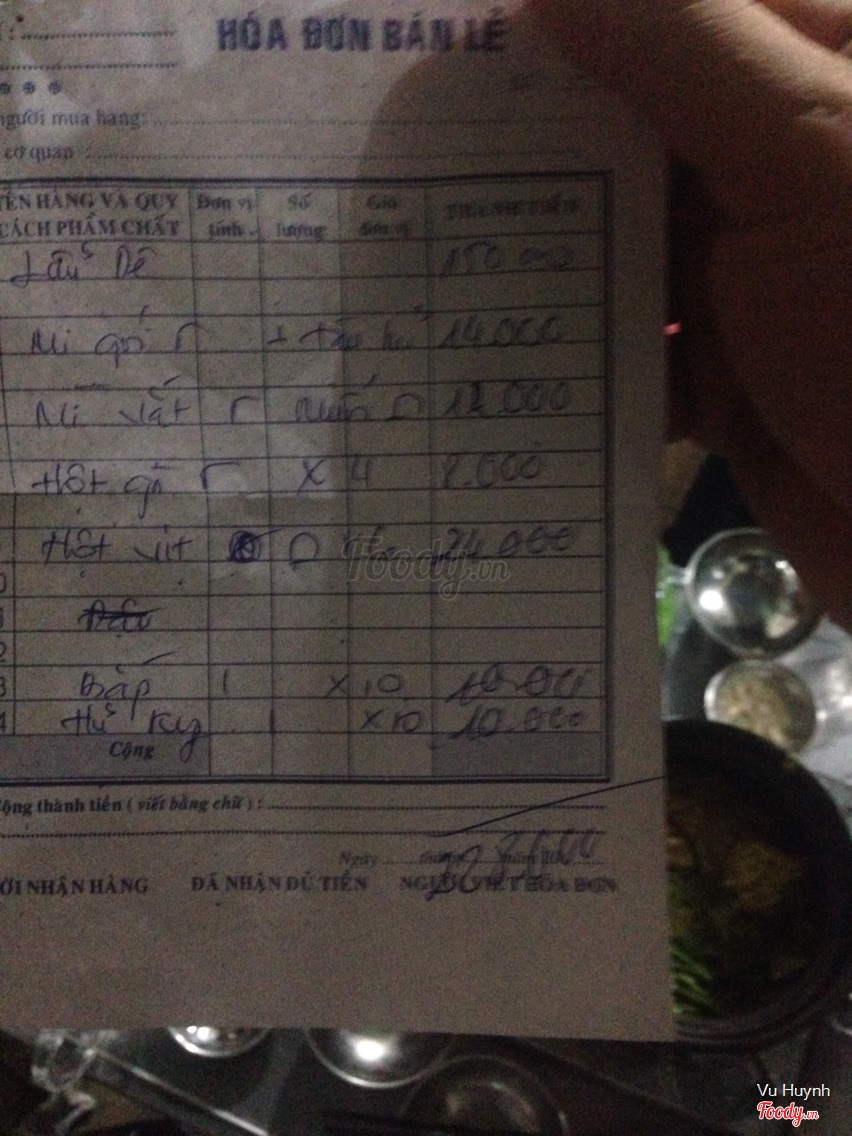 HÓA ĐƠN BÁN LẺ
người mua hàng:
cơ quan :
TÊN HÀNG VÀ QUY CÁCH PHẨM CHẤT Đơn vị tính Số lượng Giá đơn vị THÀNH TIỀN
Lẩu Dê 150 000
Mì gói + tàu hủ 14.000
Mì vắt 12.000
Hột gà x 4 8.000
Hột vịt 24.000
Bắp 1 x 10 10.000
Hủ ky 1 x 10 10.000
Cộng
Cộng thành tiền ( viết bằng chữ ) :
Ngày tháng năm
NGƯỜI NHẬN HÀNG ĐÃ NHẬN ĐỦ TIỀN NGƯỜI VIẾT HÓA ĐƠN
Foody.vn
Vu Huynh
Foody.vn